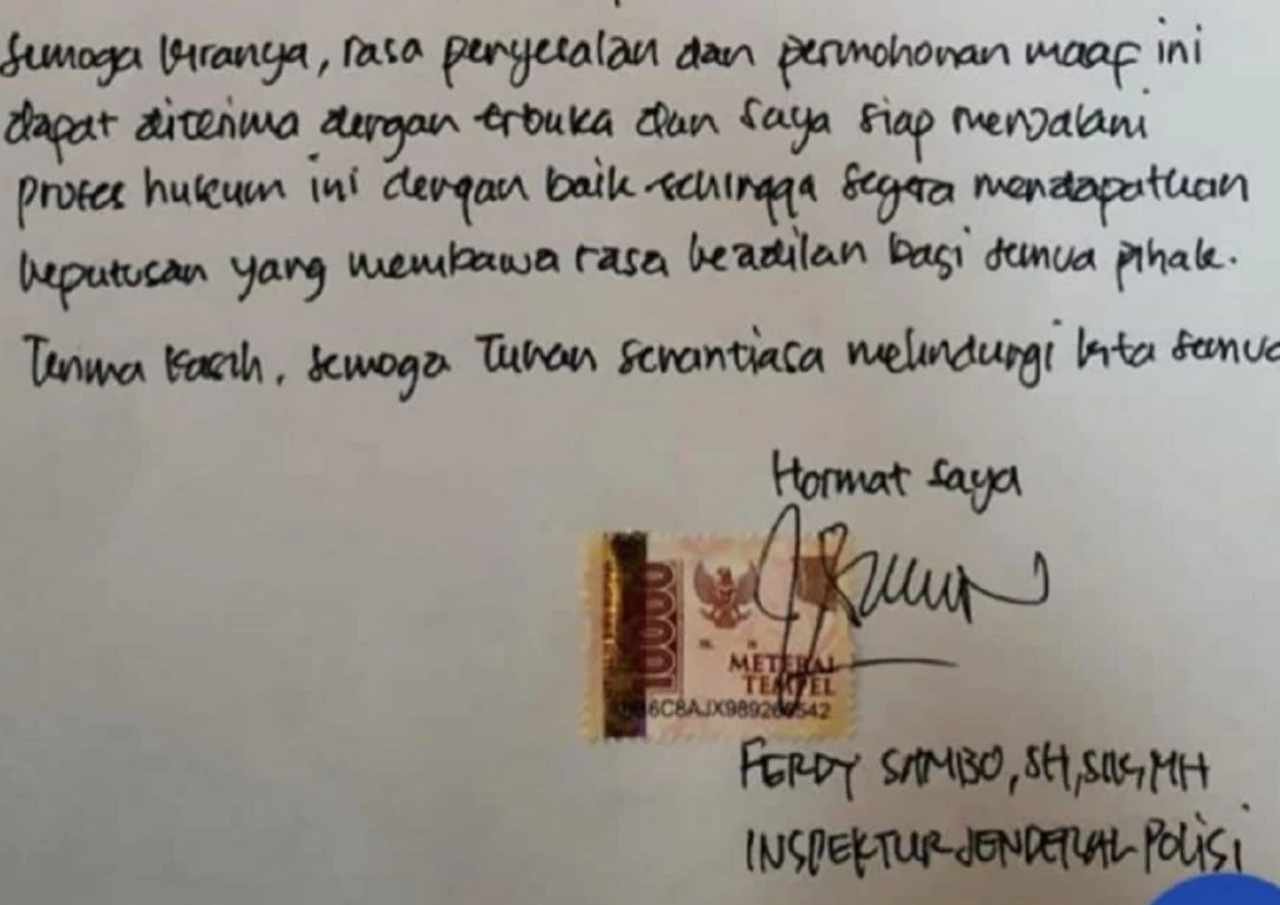 Semoga kiranya, rasa penyesalan dan permohonan maaf ini
dapat diterima dengan terbuka dan saya siap menjalani
proses hukum ini dengan baik sehingga segera mendapatkan
keputusan yang membawa rasa keadilan bagi semua pihak.
Terima kasih, semoga Tuhan senantiasa melindungi kita semua
Hormat saya
10000
METERAI
TEMPEL
FERDY SAMBO, SH, SIK, MH
INSPEKTUR JENDERAL POLISI